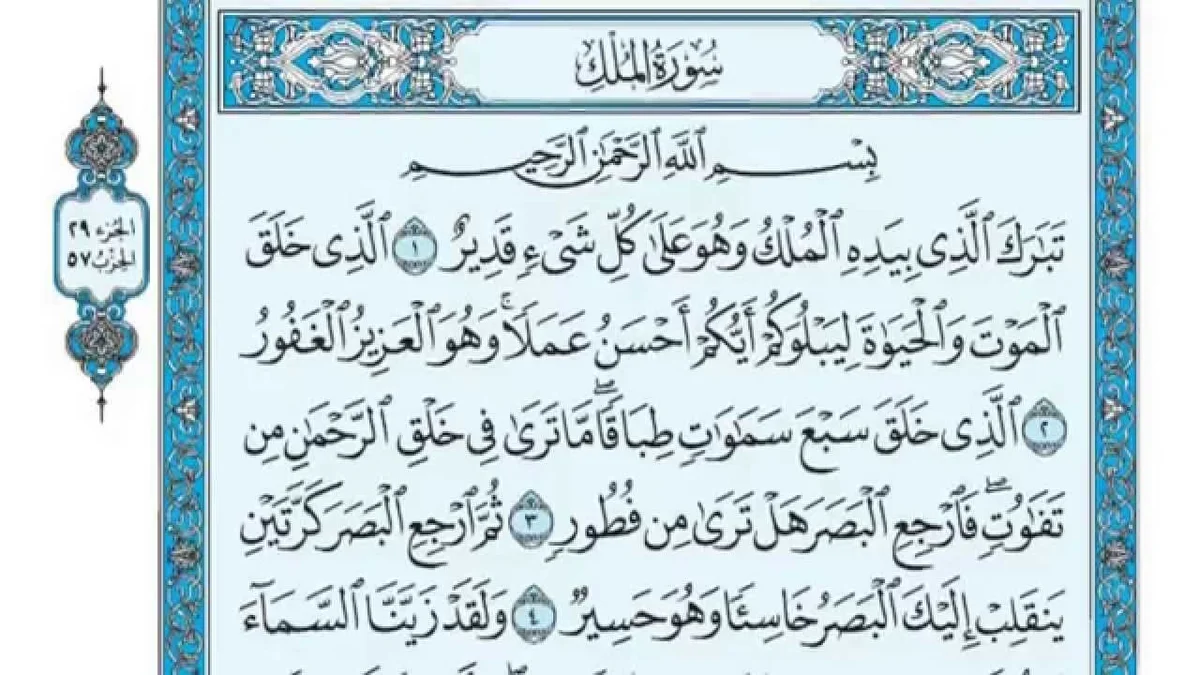 سُورَةُ المُلْكِ
بِسْمِ ٱللَّهِ ٱلرَّحْمَٰنِ ٱلرَّحِيمِ
تَبَٰرَكَ ٱلَّذِى بِيَدِهِ ٱلْمُلْكُ وَهُوَ عَلَىٰ كُلِّ شَىْءٍ قَدِيرٌ ١ ٱلَّذِى خَلَقَ
ٱلْمَوْتَ وَٱلْحَيَوٰةَ لِيَبْلُوَكُمْ أَيُّكُمْ أَحْسَنُ عَمَلًا ۚ وَهُوَ ٱلْعَزِيزُ ٱلْغَفُورُ
٢ ٱلَّذِى خَلَقَ سَبْعَ سَمَٰوَٰتٍ طِبَاقًا ۖ مَّا تَرَىٰ فِى خَلْقِ ٱلرَّحْمَٰنِ مِن
تَفَٰوُتٍ ۖ فَٱرْجِعِ ٱلْبَصَرَ هَلْ تَرَىٰ مِن فُطُورٍ ٣ ثُمَّ ٱرْجِعِ ٱلْبَصَرَ كَرَّتَيْنِ
يَنقَلِبْ إِلَيْكَ ٱلْبَصَرُ خَاسِئًا وَهُوَ حَسِيرٌ ٤ وَلَقَدْ زَيَّنَّا ٱلسَّمَآءَ
الجُزء ٢٩
الحِزْبُ ٥٧